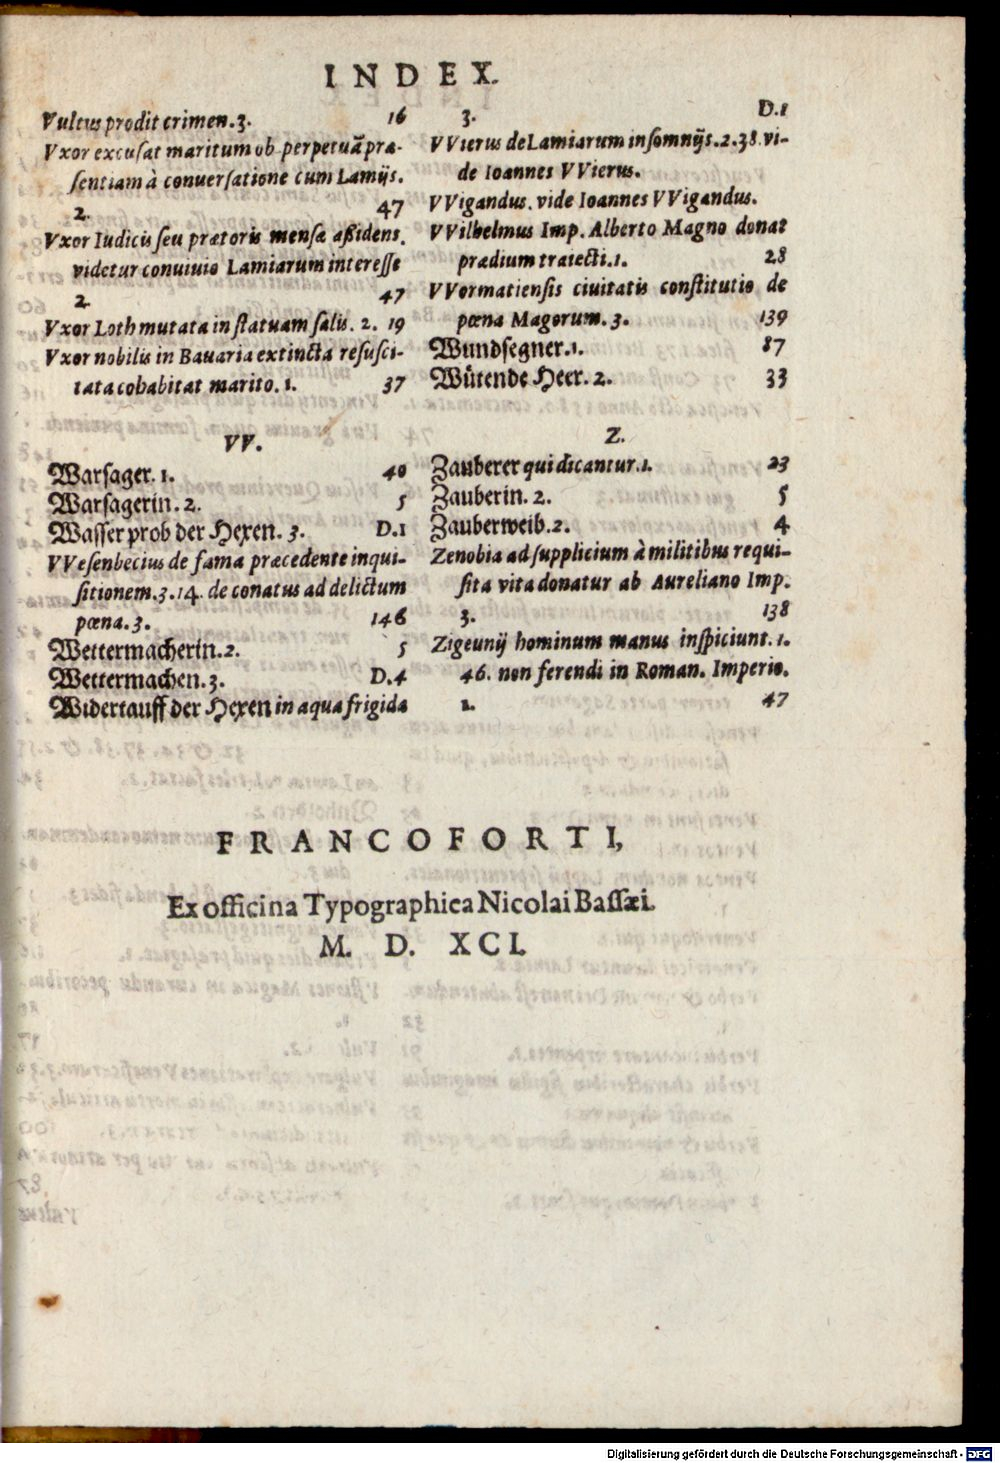 INDEX.
Vultus prodit crimen. 3. 16
Vxor excusat maritum ob perpetuā præ-
sentiam à conuersatione cum Lamijs.
2. 47
Vxor Iudicis seu prætoris mensæ aßidens,
videtur conuiuio Lamiarum interesse
2. 47
Vxor Loth mutata in statuam salis. 2. 19
Vxor nobilis in Bauaria extincta resusci-
tata cohabitat marito. 1. 37
VV.
Warsager. 1. 40
Warsagerin. 2. 5
Wasser prob der Hexen. 3. D.1
VVesenbecius de fama præcedente inqui-
sitionem. 3. 14. de conatus ad delictum
pœna. 3. 146
Wettermacherin. 2. 5
Wettermachen. 3. D.4
Widertauff der Hexen in aqua frigida
3. D.1
VVierus de Lamiarum insomnijs. 2. 38. vi-
de Ioannes VVierus.
VVigandus. vide Ioannes VVigandus.
VVilhelmus Imp. Alberto Magno donat
prædium traiecti. 1. 28
VVormatiensis ciuitatis constitutio de
pœna Magorum. 3. 139
Wundsegner. 1. 87
Wütende Heer. 2. 33
Z.
Zauberer qui dicantur. 1. 23
Zauberin. 2. 5
Zauberweib. 2. 4
Zenobia ad supplicium à militibus requi-
sita vita donatur ab Aureliano Imp.
3. 138
Zigeunij hominum manus inspiciunt. 1.
46. non ferendi in Roman. Imperio.
1. 47
FRANCOFORTI,
Ex officina Typographica Nicolai Bassæi.
M. D. XCI.
Digitalisierung gefördert durch die Deutsche Forschungsgemeinschaft - DFG